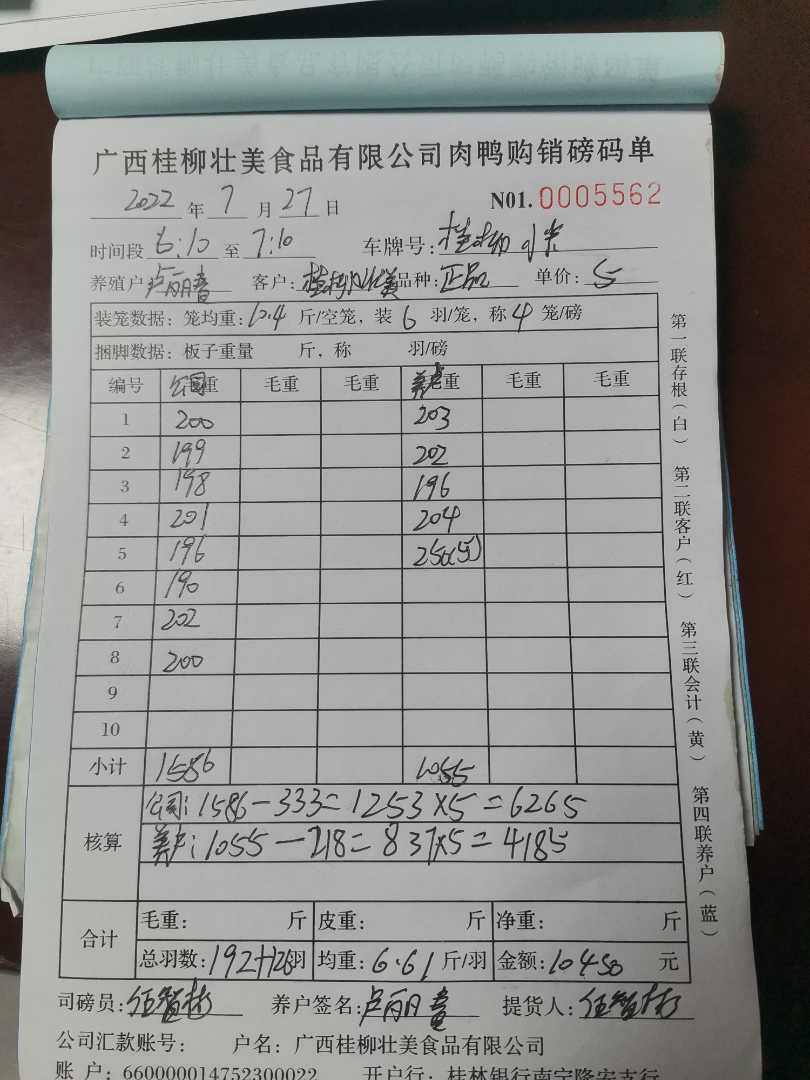 广西桂柳壮美食品有限公司肉鸭购销磅码单
2022 年 7 月 27 日 N01. 0005562
时间段 6:10 至 7:10 车牌号: 桂柳小卡
养殖户 卢丽萱 客户: 桂柳壮美 品种: 正品 单价: 5
装笼数据: 笼均重: 10.4 斤/空笼, 装 6 羽/笼, 称 4 笼/磅
捆脚数据: 板子重量 斤, 称 羽/磅
编号 公司 毛重 毛重 毛重 养户 毛重 毛重 毛重
1 200 203
2 199 202
3 198 196
4 201 204
5 196 250(5)
6 190
7 202
8 200
9
10
小计 1586 1055
核算
公司: 1586-333=1253×5=6265
养户: 1055-218=837×5=4185
合计
毛重: 斤 皮重: 斤 净重: 斤
总羽数: 192+126羽 均重: 6.61 斤/羽 金额: 10450 元
司磅员: 养户签名: 卢丽萱 提货人:
公司汇款账号: 户名: 广西桂柳壮美食品有限公司
账 户: 660000014752300022 开户行: 桂林银行南宁隆安支行
第一联存根(白) 第二联客户(红) 第三联会计(黄) 第四联养户(蓝)